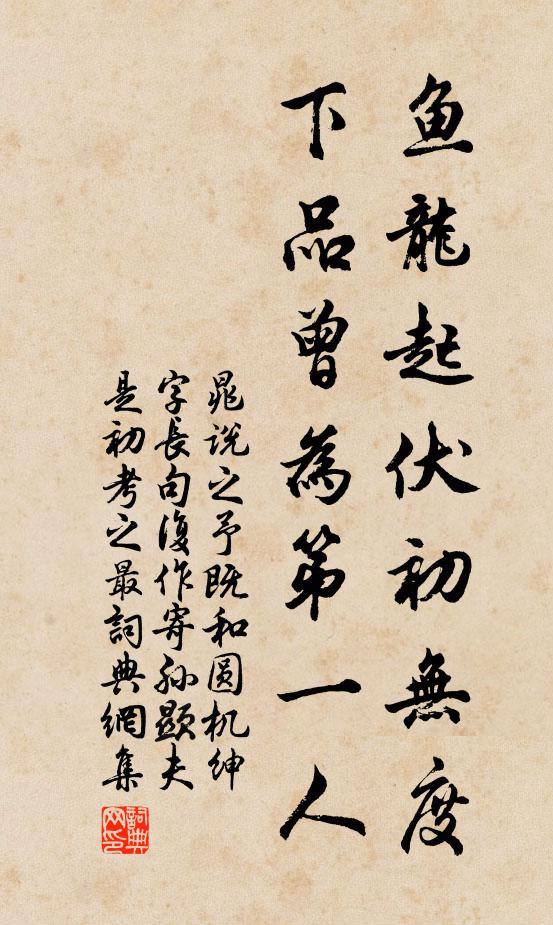 鱼龍起伏初無度
下品曾為第一人
晁说之予既和圆机绅
字長句復作寄孙顕夫
是初考之最詞典網集
詞典网印